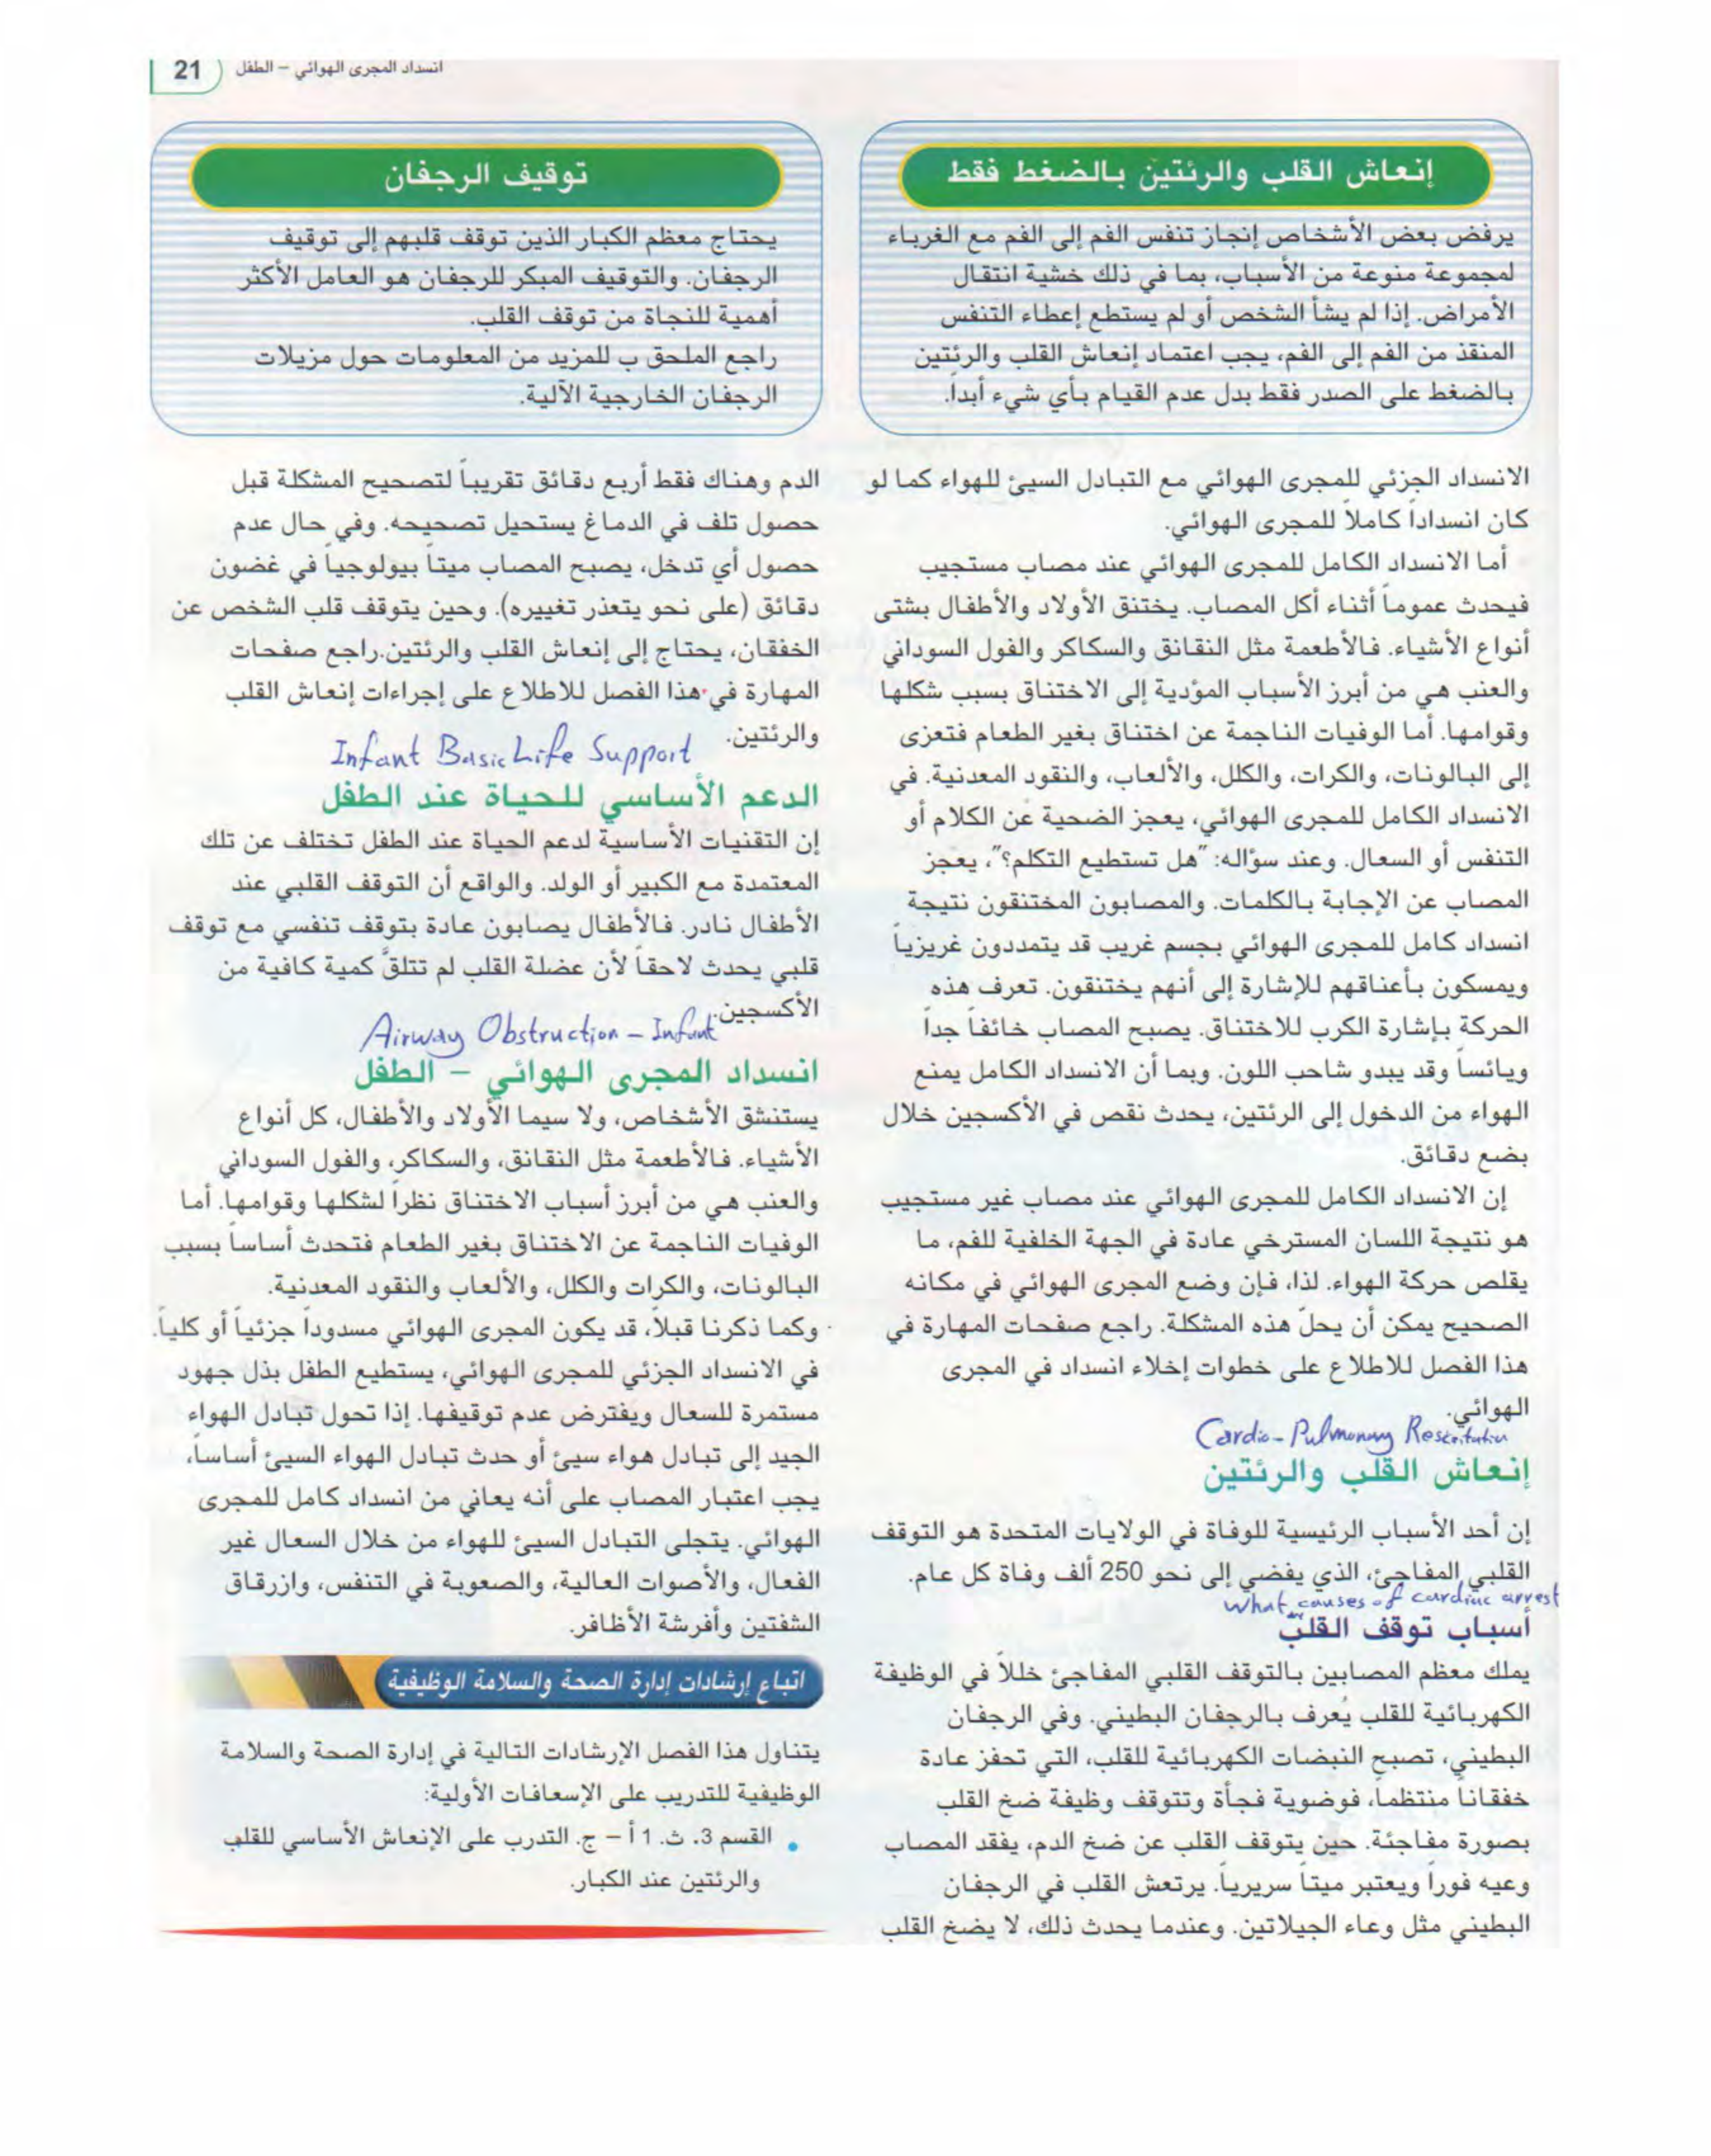 انسداد المجرى الهوائي – الطفل
21
إنعاش القلب والرئتين بالضغط فقط
يرفض بعض الأشخاص إنجاز تنفس الفم إلى الفم مع الغرباء
لمجموعة منوعة من الأسباب، بما في ذلك خشية انتقال
الأمراض. إذا لم يشأ الشخص أو لم يستطع إعطاء التنفس
المنقذ من الفم إلى الفم، يجب اعتماد إنعاش القلب والرئتين
بالضغط على الصدر فقط بدل عدم القيام بأي شيء أبداً.
الانسداد الجزئي للمجرى الهوائي مع التبادل السيئ للهواء كما لو
كان انسداداً كاملاً للمجرى الهوائي.
أما الانسداد الكامل للمجرى الهوائي عند مصاب مستجيب
فيحدث عموماً أثناء أكل المصاب. يختنق الأولاد والأطفال بشتى
أنواع الأشياء. فالأطعمة مثل النقانق والسكاكر والفول السوداني
والعنب هي من أبرز الأسباب المؤدية إلى الاختناق بسبب شكلها
وقوامها. أما الوفيات الناجمة عن اختناق بغير الطعام فتعزى
إلى البالونات، والكرات، والكلل، والألعاب، والنقود المعدنية. في
الانسداد الكامل للمجرى الهوائي، يعجز الضحية عن الكلام أو
التنفس أو السعال. وعند سؤاله: "هل تستطيع التكلم؟"، يعجز
المصاب عن الإجابة بالكلمات. والمصابون المختنقون نتيجة
انسداد كامل للمجرى الهوائي بجسم غريب قد يتمددون غريزياً
ويمسكون بأعناقهم للإشارة إلى أنهم يختنقون. تعرف هذه
الحركة بإشارة الكرب للاختناق. يصبح المصاب خائفاً جداً
ويائساً وقد يبدو شاحب اللون. وبما أن الانسداد الكامل يمنع
الهواء من الدخول إلى الرئتين، يحدث نقص في الأكسجين خلال
بضع دقائق.
إن الانسداد الكامل للمجرى الهوائي عند مصاب غير مستجيب
هو نتيجة اللسان المسترخي عادة في الجهة الخلفية للفم، ما
يقلص حركة الهواء. لذا، فإن وضع المجرى الهوائي في مكانه
الصحيح يمكن أن يحلّ هذه المشكلة. راجع صفحات المهارة في
هذا الفصل للاطلاع على خطوات إخلاء انسداد في المجرى
الهوائي.
Cardio-Pulmonary
إنعاش القلب والرئتين
إن أحد الأسباب الرئيسية للوفاة في الولايات المتحدة هو التوقف
القلبي المفاجئ، الذي يفضي إلى نحو 250 ألف وفاة كل عام.
What causes of cardiac arrest
أسباب توقف القلب
يملك معظم المصابين بالتوقف القلبي المفاجئ خللاً في الوظيفة
الكهربائية للقلب يُعرف بالرجفان البطيني. وفي الرجفان
البطيني، تصبح النبضات الكهربائية للقلب، التي تحفز عادة
خفقاناً منتظماً، فوضوية فجأة وتتوقف وظيفة ضخ القلب
بصورة مفاجئة. حين يتوقف القلب عن ضخ الدم، يفقد المصاب
وعيه فوراً ويعتبر ميتاً سريرياً. يرتعش القلب في الرجفان
البطيني مثل وعاء الجيلاتين. وعندما يحدث ذلك، لا يضخ القلب
توقيف الرجفان
يحتاج معظم الكبار الذين توقف قلبهم إلى توقيف
الرجفان. والتوقيف المبكر للرجفان هو العامل الأكثر
أهمية للنجاة من توقف القلب.
راجع الملحق ب للمزيد من المعلومات حول مزيلات
الرجفان الخارجية الآلية.
الدم وهناك فقط أربع دقائق تقريباً لتصحيح المشكلة قبل
حصول تلف في الدماغ يستحيل تصحيحه. وفي حال عدم
حصول أي تدخل، يصبح المصاب ميتاً بيولوجياً في غضون
دقائق (على نحو يتعذر تغييره). وحين يتوقف قلب الشخص عن
الخفقان، يحتاج إلى إنعاش القلب والرئتين.راجع صفحات
المهارة في هذا الفصل للاطلاع على إجراءات إنعاش القلب
والرئتين.
Infant Basic Life Support
الدعم الأساسي للحياة عند الطفل
إن التقنيات الأساسية لدعم الحياة عند الطفل تختلف عن تلك
المعتمدة مع الكبير أو الولد. والواقع أن التوقف القلبي عند
الأطفال نادر. فالأطفال يصابون عادة بتوقف تنفسي مع توقف
قلبي يحدث لاحقاً لأن عضلة القلب لم تتلقَّ كمية كافية من
الأكسجين.
Airway Obstruction – Infant
انسداد المجرى الهوائي – الطفل
يستنشق الأشخاص، ولا سيما الأولاد والأطفال، كل أنواع
الأشياء. فالأطعمة مثل النقانق، والسكاكر، والفول السوداني
والعنب هي من أبرز أسباب الاختناق نظراً لشكلها وقوامها. أما
الوفيات الناجمة عن الاختناق بغير الطعام فتحدث أساساً بسبب
البالونات، والكرات والكلل، والألعاب والنقود المعدنية.
وكما ذكرنا قبلاً، قد يكون المجرى الهوائي مسدوداً جزئياً أو كلياً.
في الانسداد الجزئي للمجرى الهوائي، يستطيع الطفل بذل جهود
مستمرة للسعال ويفترض عدم توقيفها. إذا تحول تبادل الهواء
الجيد إلى تبادل هواء سيئ أو حدث تبادل الهواء السيئ أساساً،
يجب اعتبار المصاب على أنه يعاني من انسداد كامل للمجرى
الهوائي. يتجلى التبادل السيئ للهواء من خلال السعال غير
الفعال، والأصوات العالية، والصعوبة في التنفس، وازرقاق
الشفتين وأفرشة الأظافر.
اتباع إرشادات إدارة الصحة والسلامة الوظيفية
يتناول هذا الفصل الإرشادات التالية في إدارة الصحة والسلامة
الوظيفية للتدريب على الإسعافات الأولية:
• القسم 3. ث. 1 أ – ج. التدرب على الإنعاش الأساسي للقلب
والرئتين عند الكبار.